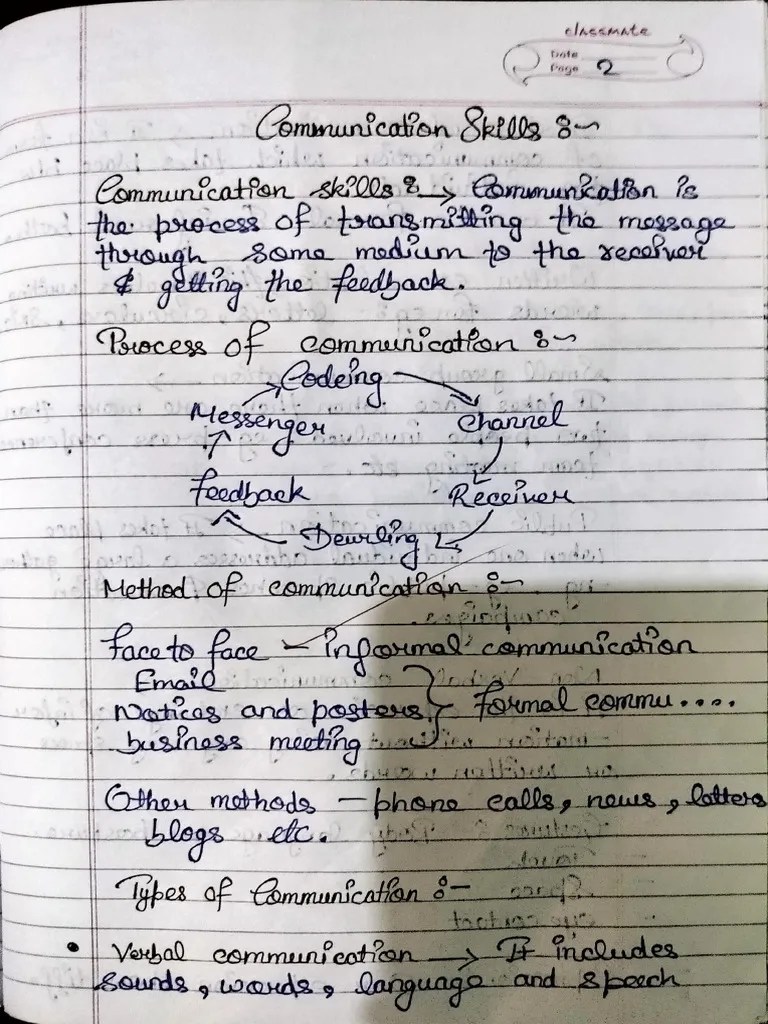 classmate
Date
Page 2
Communication Skills :~
Communication skills :→ Communication is
the process of transmitting the message
through some medium to the receiver
& getting the feedback.
Process of communication :~
Codeing
Messenger Channel
Feedback Receiver
Method of communication :~
Face to face – informal communication
Email
Notices and posters } formal commu....
business meeting
Other methods – phone calls, news, latters
blogs etc.
Types of Communication :–
• Verbal communication → It includes
sounds, words, language and speech